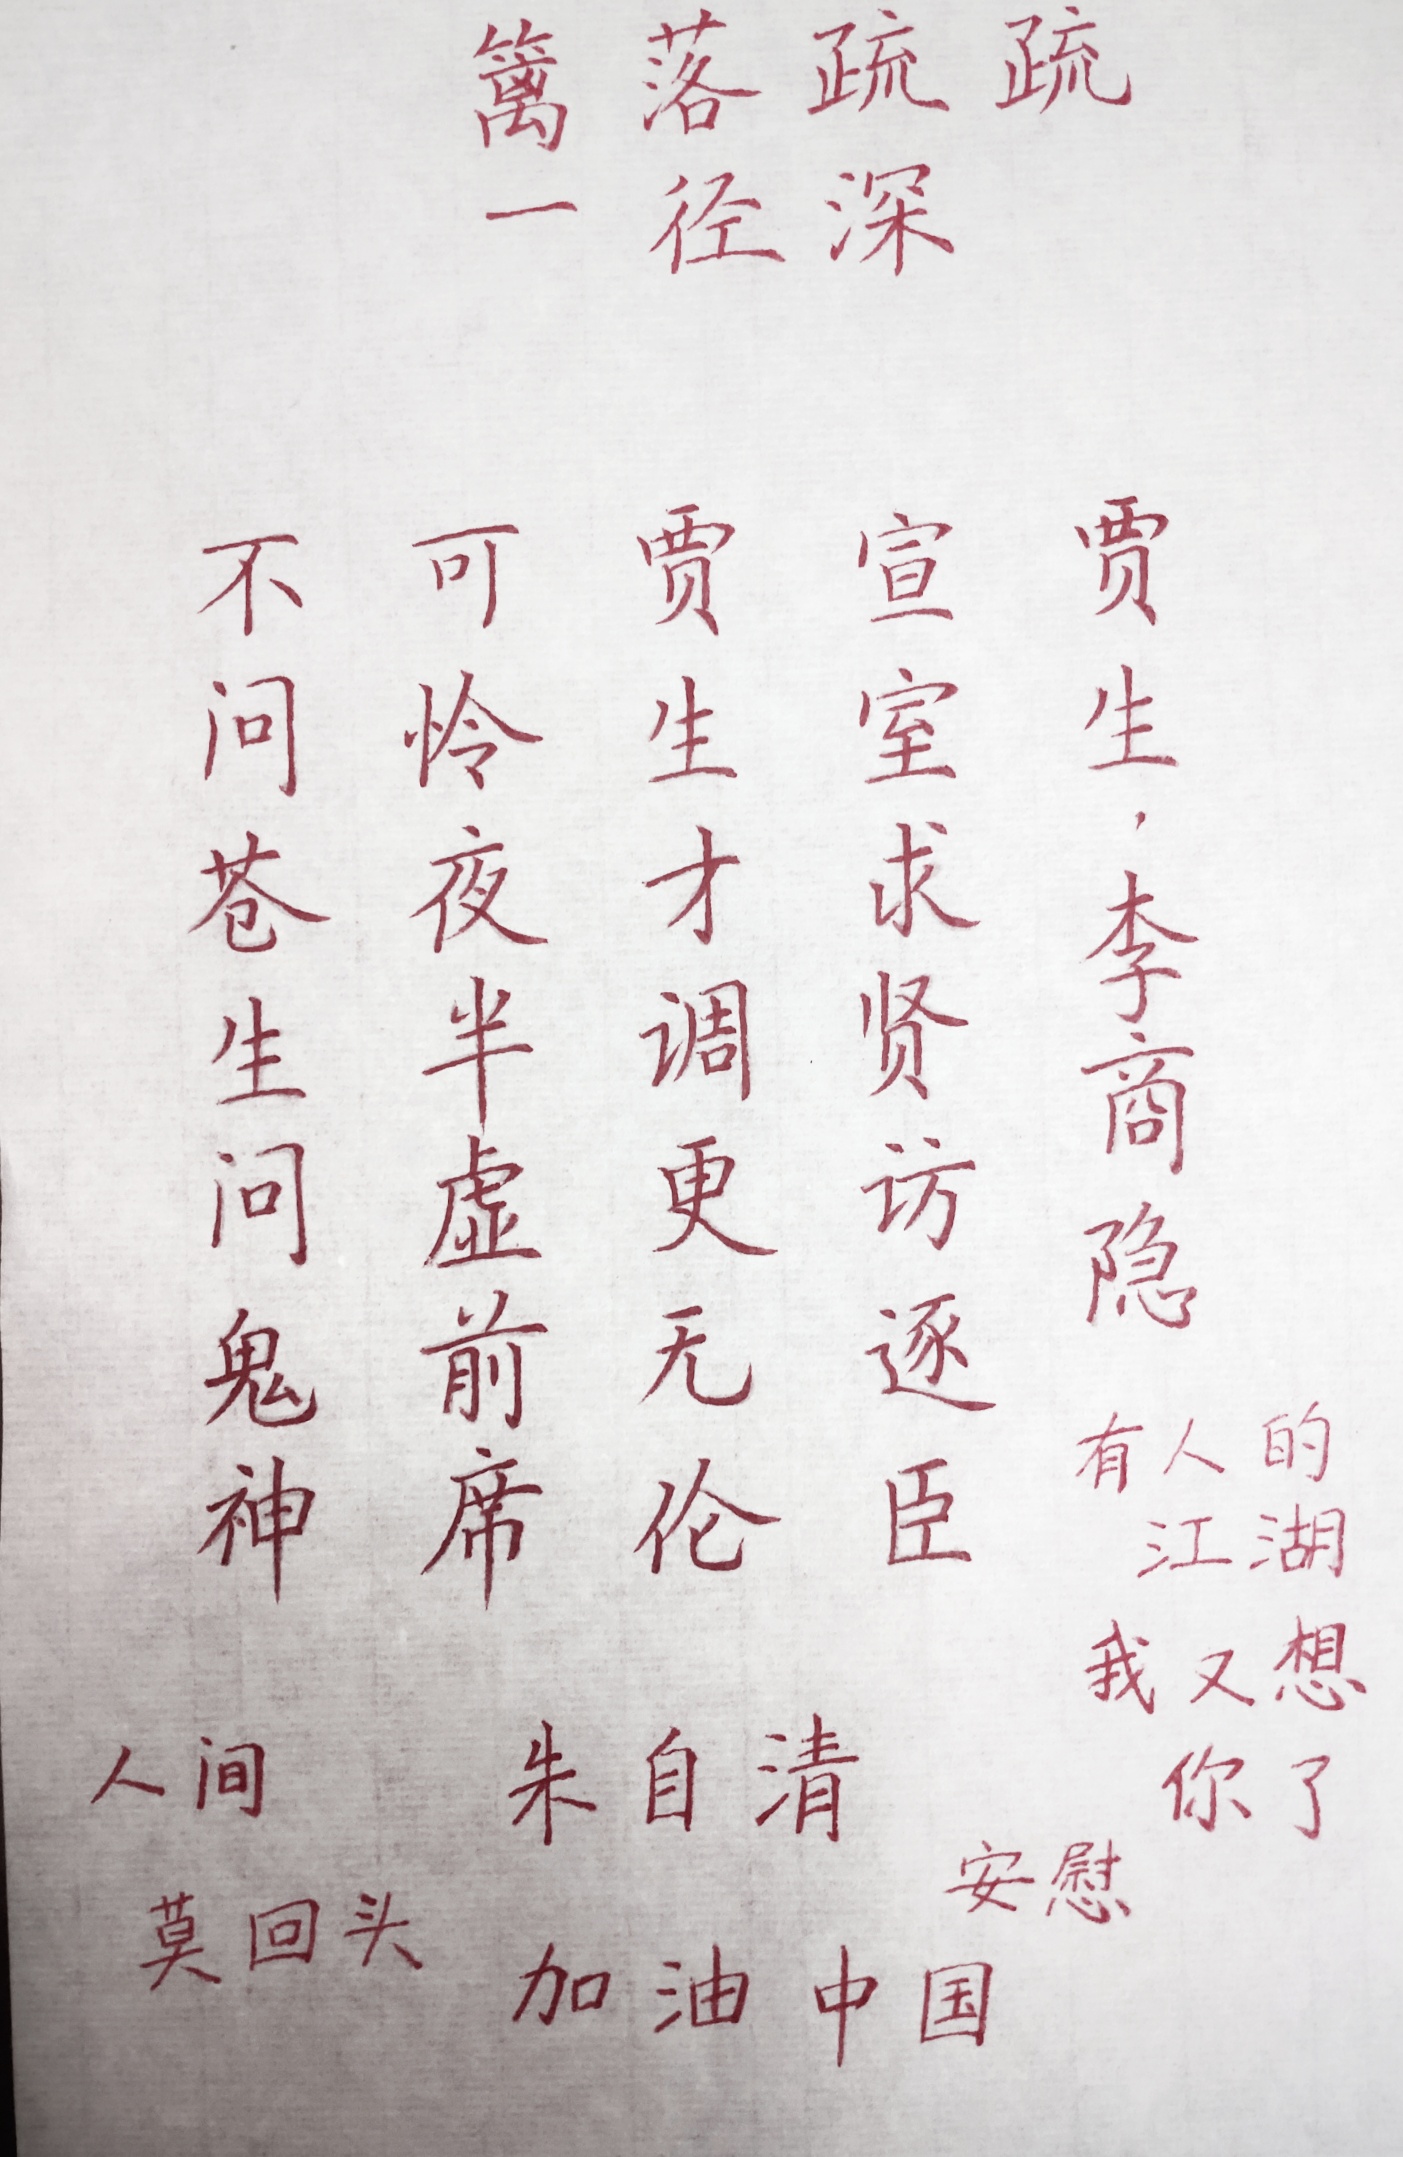 篱落疏疏
一径深
贾生，李商隐
宣室求贤访逐臣
贾生才调更无伦
可怜夜半虚前席
不问苍生问鬼神
有人的
江湖
我又想
你了
人间
朱自清
安慰
莫回头
加油中国